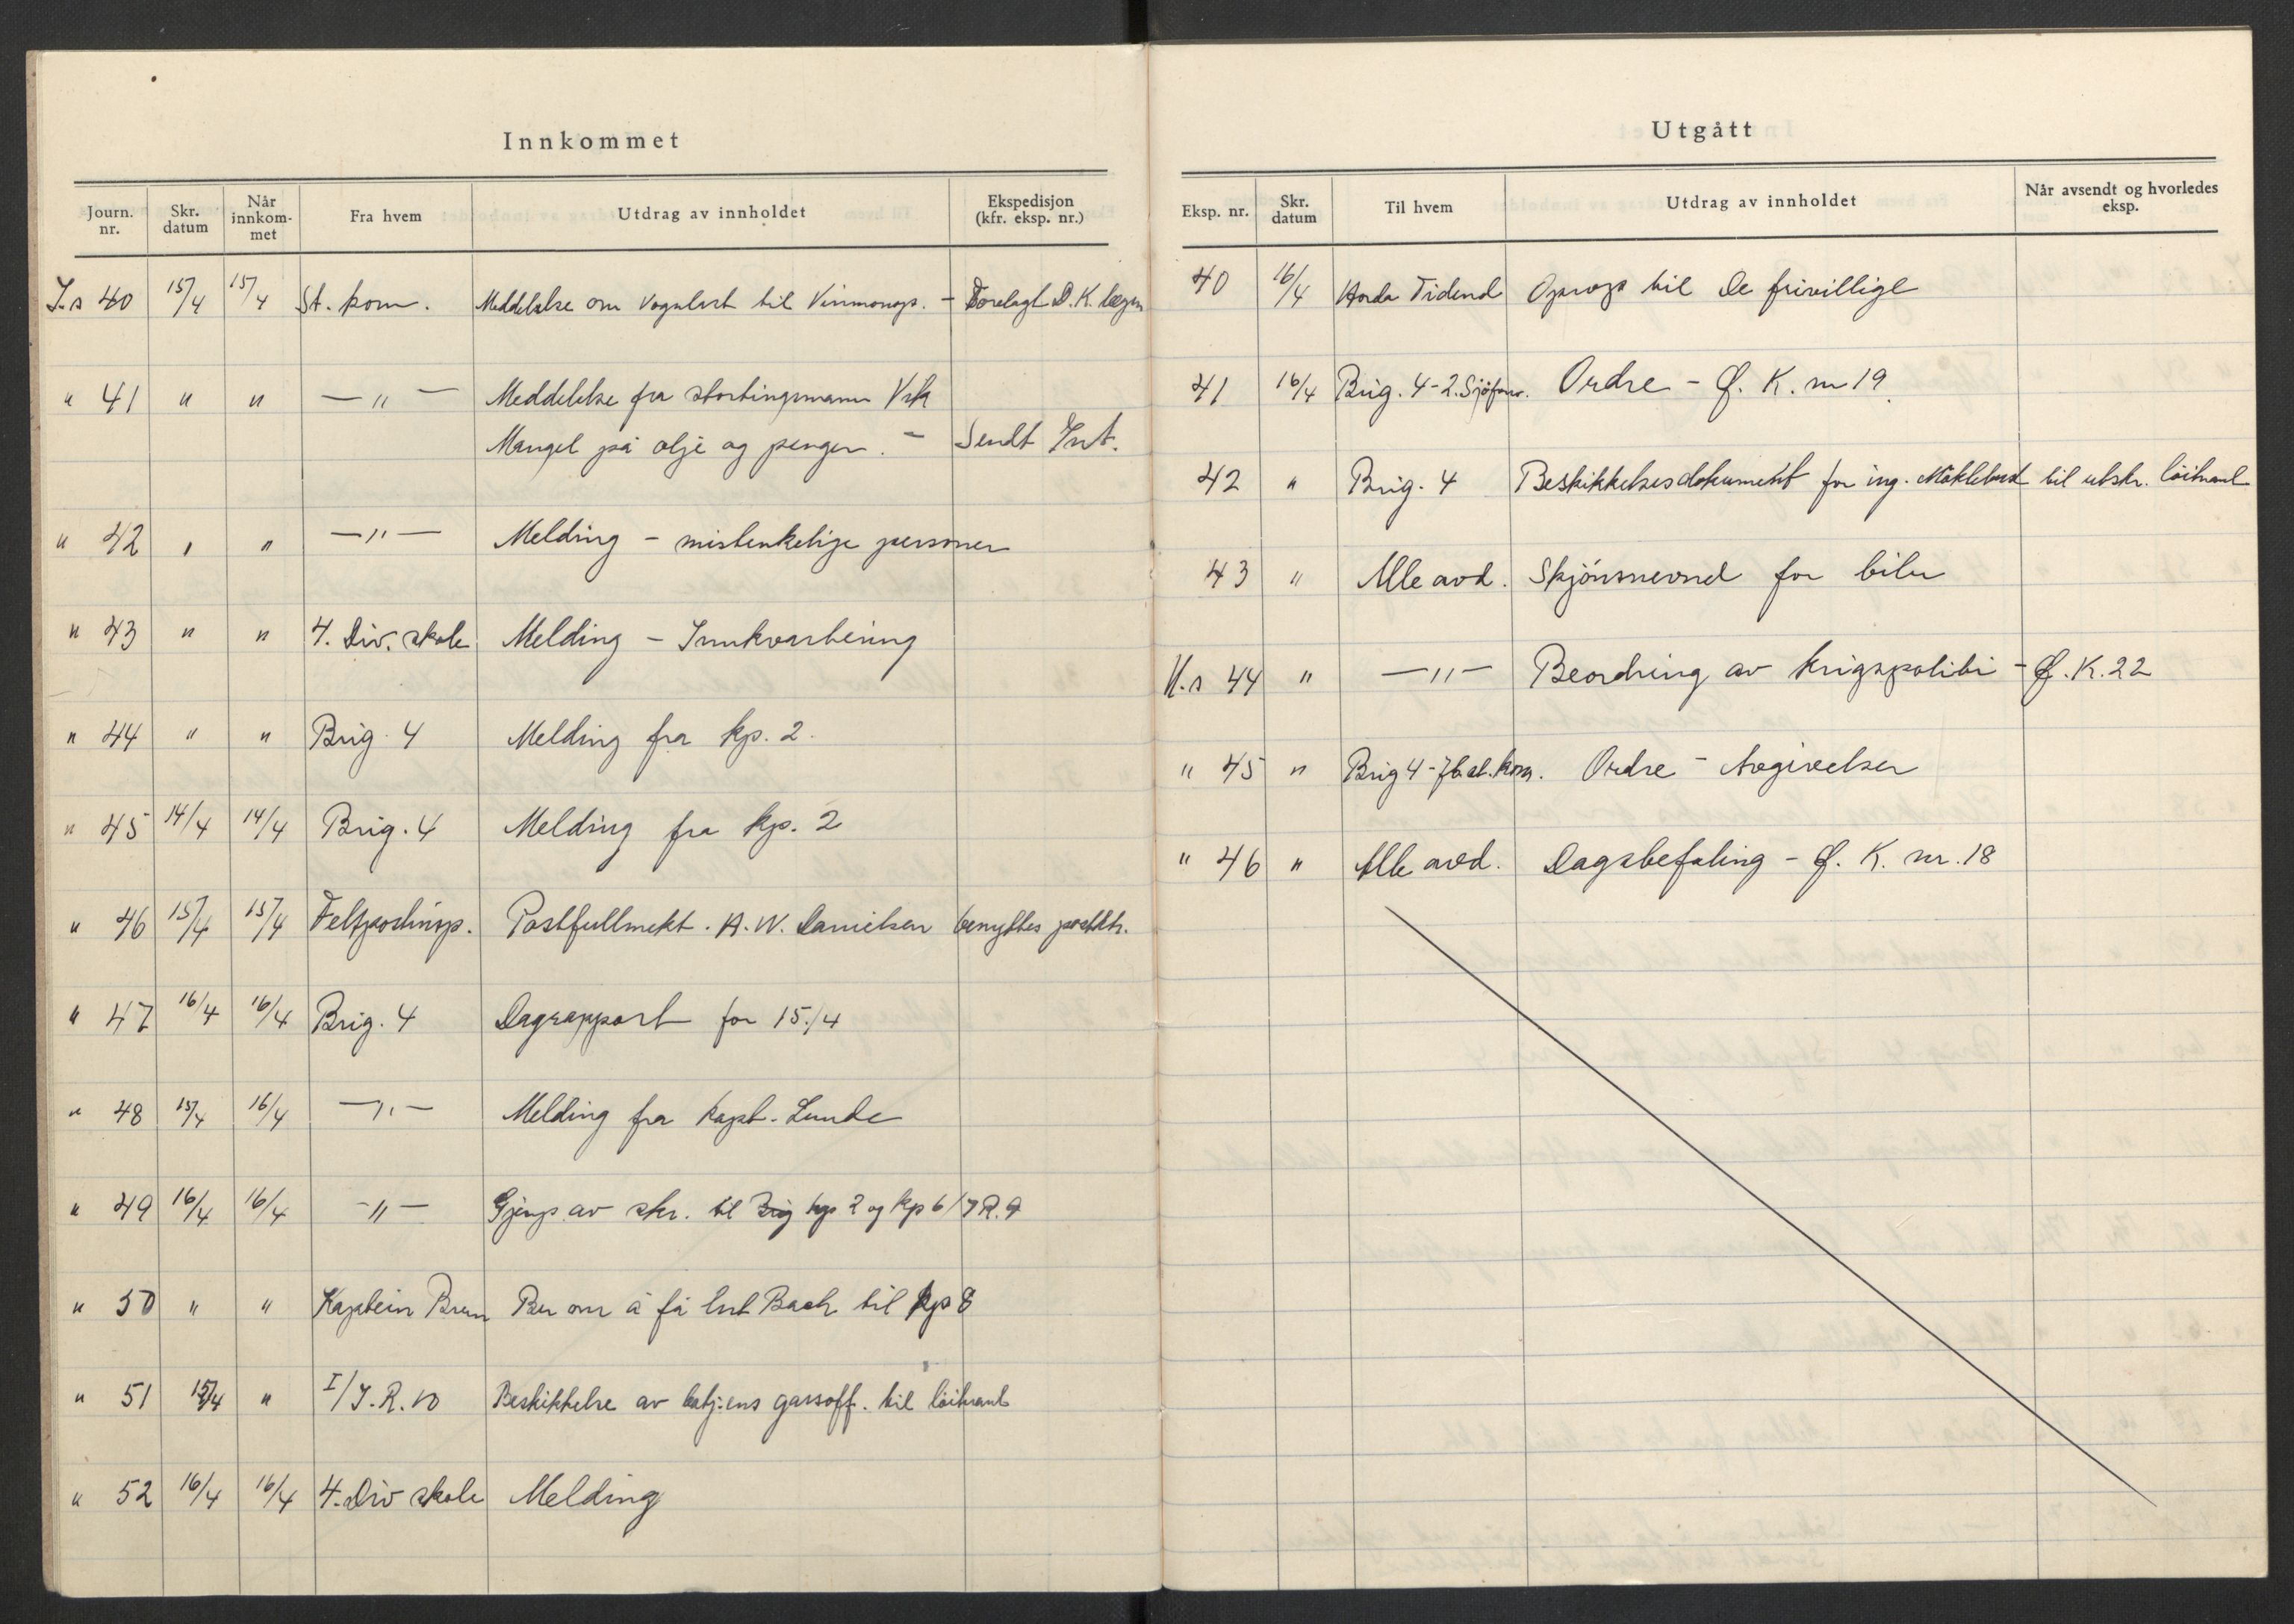 Innkommet
Journ. nr. Skr. datum Når innkom-met Fra hvem Utdrag av innholdet Ekspedisjon (kfr. eksp. nr.)
J.s 40 15/4 15/4 St. kom. Meddelelse om vognlast til Vinmonop. - Forelagt D.K. legen
" 41 " " —"— Meddelelse fra stortingsmann
Mangel på olje og penger. - Sendt Int.
" 42 " " —"— Melding - mistenkelige personer
" 43 " " 4. Div. skole Melding - Innkvartering
" 44 " " Brig. 4 Melding fra kp. 2.
" 45 14/4 14/4 Brig. 4 Melding fra kp. 2
" 46 15/4 15/4 Feltpostinsp. Postfullmekt. A.W. Danielsen benyttes
" 47 16/4 16/4 Brig. 4 Dagrapport for 15./4
" 48 15/4 16/4 —"— Melding fra kapt. Lunde
" 49 16/4 16/4 —"— Gjenp. av skr. til kp 2 og kp 6/J.R.9
" 50 " " Kaptein Brun Ber om å få lnt Bach til kp 8
" 51 15/4 " I/J.R.10 Beskikkelse av batj:ens gassoff. til löitnant
" 52 16/4 16/4 4. Div skole Melding
Utgått
Eksp. nr. Skr. datum Til hvem Utdrag av innholdet Når avsendt og hvorledes eksp.
40 16/4 Horda Tidend Oprop til De frivillige
41 16/4 Brig. 4 - 2. Sjöforsv. Ordre - Ø. K. nr 19.
42 " Brig. 4 Beskikkelsesdokument for ing. Möklebust til utskr. löitnant
43 " Alle avd. Skjönsnevnd for biler
H.s 44 " —"— Beordring av krigspoliti - Ø. K. 22
" 45 " Brig 4 - Ordre - Avgivelser
" 46 " Alle avd. Dagsbefaling - Ø. K. nr. 18